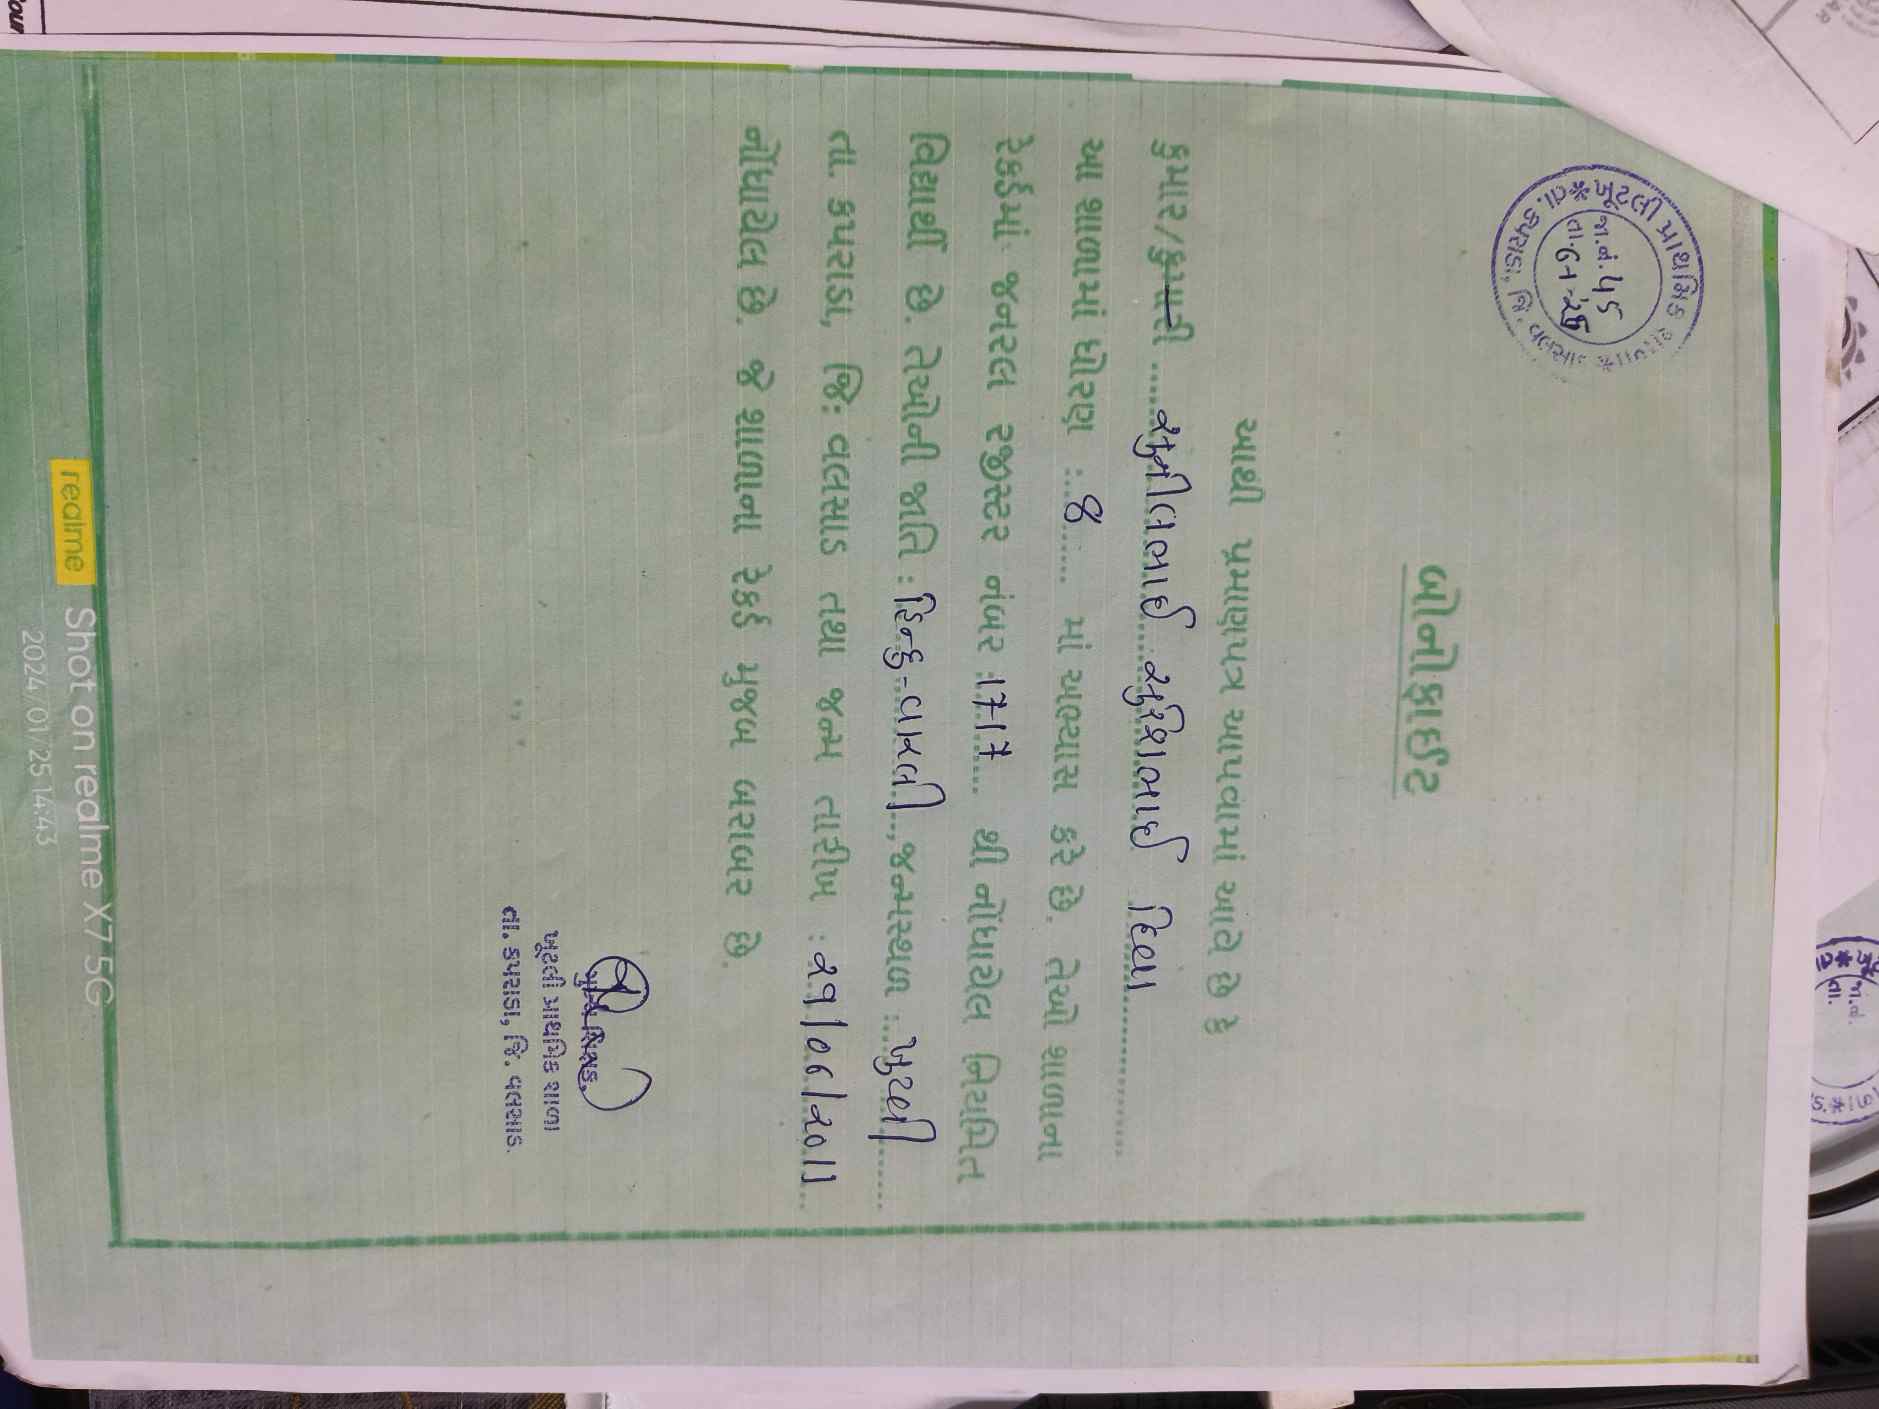 પ્રાથમિક શાળા
તા. કપરાડા, જિ. વલસાડ
જા.નં. 45
બોનોફાઈટ
આથી પ્રમાણપત્ર આપવામાં આવે છે કે
કુમાર/કુમારી સુનીલભાઈ સુરેશભાઈ દિવા
આ શાળામાં ધોરણ : 8 માં અભ્યાસ કરે છે. તેઓ શાળાના
રેકર્ડમાં જનરલ રજીસ્ટર નંબર : 1717 થી નોંધાયેલ નિયમિત
વિદ્યાર્થી છે. તેઓની જાતિ : હિન્દુ-વારલી, જન્મસ્થળ : ખુટલી
તા. કપરાડા, જિ: વલસાડ તથા જન્મ તારીખ : 21/06/2011
નોંધાયેલ છે. જે શાળાના રેકર્ડ મુજબ બરાબર છે.
મુખ્ય શિક્ષક,
ખૂટલી પ્રાથમિક શાળા
તા. કપરાડા, જિ. વલસાડ.
realme Shot on realme X7 5G
2024/01/25 14:43